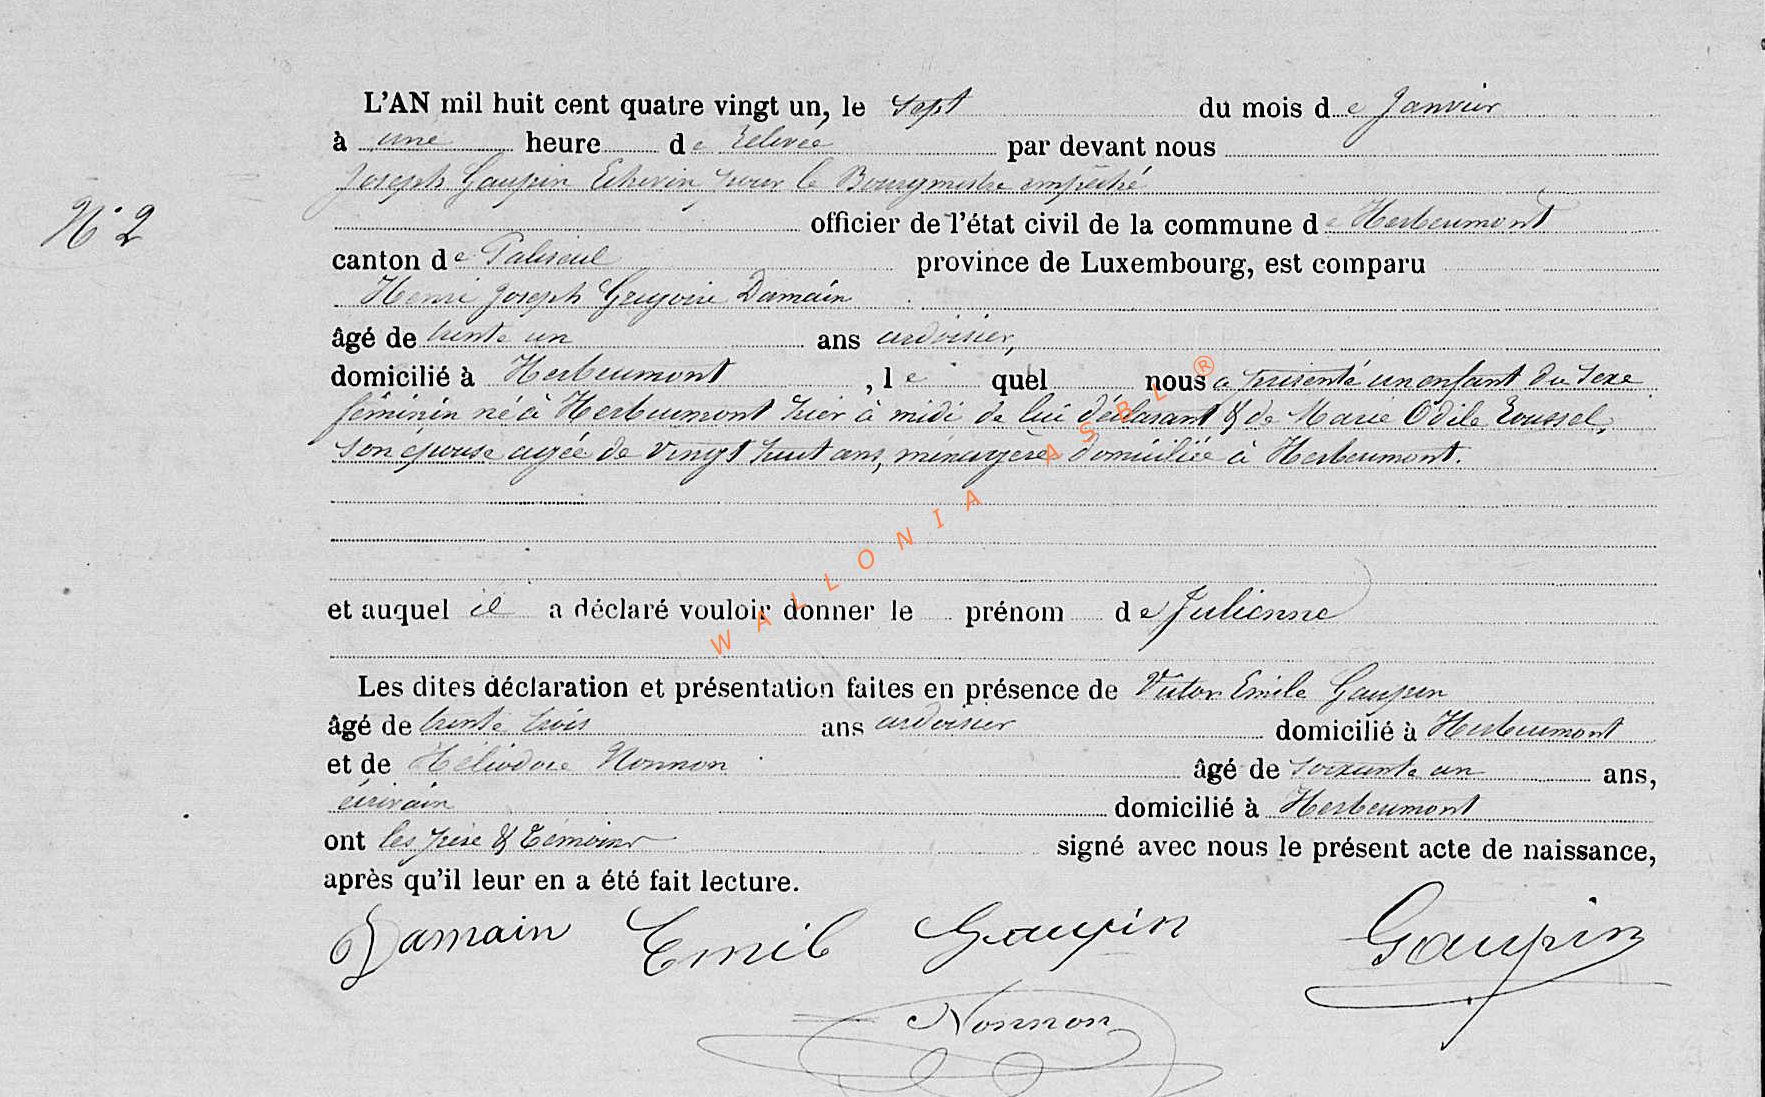 L'AN mil huit cent quatre vingt un, le sept du mois de Janvier
à une heure de relevée par devant nous
Joseph Gaupin Echevin pour le Bourgmestre empêché
N° 2
officier de l'état civil de la commune de Herbeumont
canton de Paliseul province de Luxembourg, est comparu
Henri Joseph Grégoire Damain
âgé de trente un ans ardoisier,
domicilié à Herbeumont, le quel nous a présenté un enfant du sexe
féminin né à Herbeumont hier à midi de lui déclarant & de Marie Odile Roussel,
son épouse agée de vingt huit ans, ménagère domiciliée à Herbeumont.
et auquel il a déclaré vouloir donner le prénom de Julienne
Les dites déclaration et présentation faites en présence de Victor Emile Gaupin
âgé de trente trois ans ardoisier domicilié à Herbeumont
et de Héliodore Nonnon âgé de soixante un ans,
écrivain domicilié à Herbeumont
ont les père & témoins signé avec nous le présent acte de naissance,
après qu'il leur en a été fait lecture.
Damain Emile Gaupin Gaupin
Nonnon
WALLONIA ASBL ®